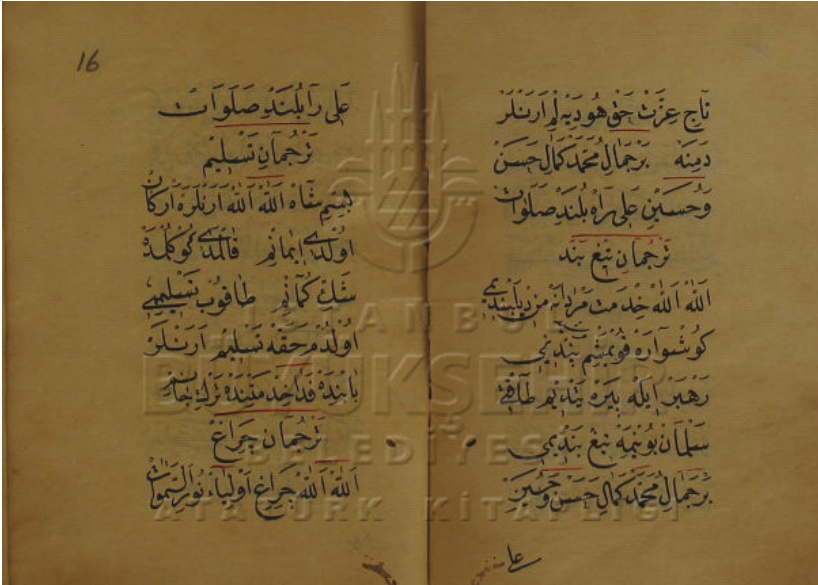 تاج عزت حق هو ديه لم ارنلر
دمنه برجمال محمد كمال حسن
وحسين على راه بلند صلوات
ترجمان تيغ بند
الله الله خدمت مردانه من ديلبندى
كوشواره قويمشم بندينى
رهبر ايله پيره بنديم طاقى
سلمان بوينمه تيغ بندمى
برجمال محمد كمال حسن وحسين
على
16
على را بلند صلوات
ترجمان تسليم
بسم شاه الله الله ارنلره اركان
اولدى ايمانم قالمدى كوكلمده
شك كمانم طاقوب تسليمى
اولدم حقه تسليم ارنلر
يابنده فدا خدمتنده ترك جانم
ترجمان چراغ
الله الله چراغ اولياء نور السموات
ISTANBUL
BÜYÜKŞEHİR
BELEDİYESİ
ATATÜRK KİTAPLIĞI